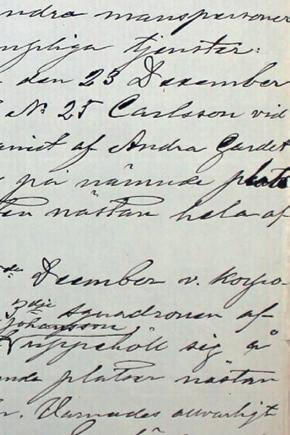 ndra manspersoner
ngliga tjenster:
den 23 December
No 25 Carlsson vid
af Andra Gardet
på nämnde plats
ten nästan hela af
December v. Korpo-
3dje squadronen af
Johansson
uppehöll sig å
nde platser nästan
Varnades allvarligt